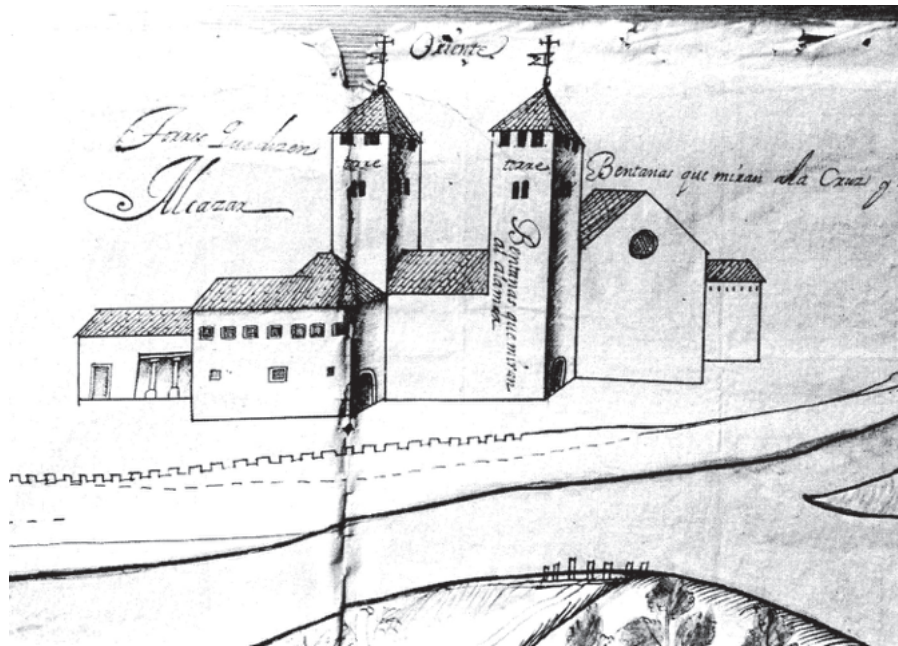 Oriente
Torres que dizen
Alcazar
torre
torre
Bentanas que miran ala Cruz q
Bentanas que miran
al alamea